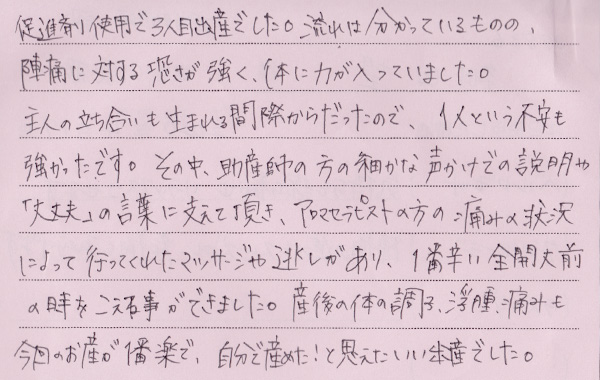 促進剤使用で3人目出産でした。流れは分かっているものの、
陣痛に対する恐さが強く、体に力が入っていました。
主人の立ち合いも生まれる間際からだったので、1人という不安も
強かったです。その中、助産師の方の細かな声かけでの説明や
「大丈夫」の言葉に支えて頂き、アロマセラピストの方の痛みの状況
によって行ってくれたマッサージや逃しがあり、1番辛い全開大前
の時をこえる事ができました。産後の体の調子、浮腫、痛みも
今回のお産が1番楽で、自分で産めた!と思えたいい出産でした。